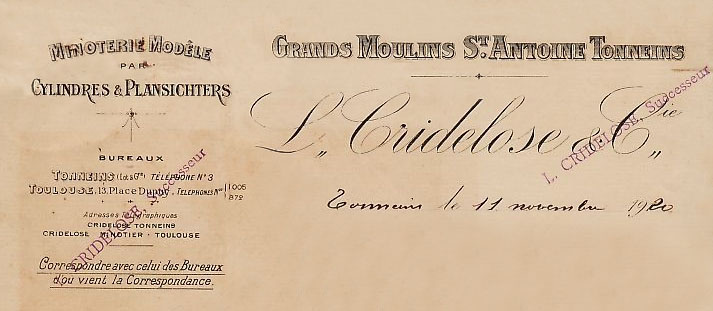 MINOTERIE MODÈLE
PAR
CYLINDRES & PLANSICHTERS
BUREAUX
TONNEINS (Lot & Gne) TÉLÉPHONE N° 3
TOULOUSE, 13, Place Dupuy, TELEPHONES Nos 1.005
872
Adresses Télégraphiques
CRIDELOSE TONNEINS
CRIDELOSE MINOTIER - TOULOUSE
Correspondre avec celui des Bureaux
d'où vient la Correspondance.
L. CRIDELOSE, Successeur
GRANDS MOULINS ST. ANTOINE TONNEINS
L. Cridelose & Cie
L. CRIDELOSE, Successeur
Tonneins le 11 novembre 1920